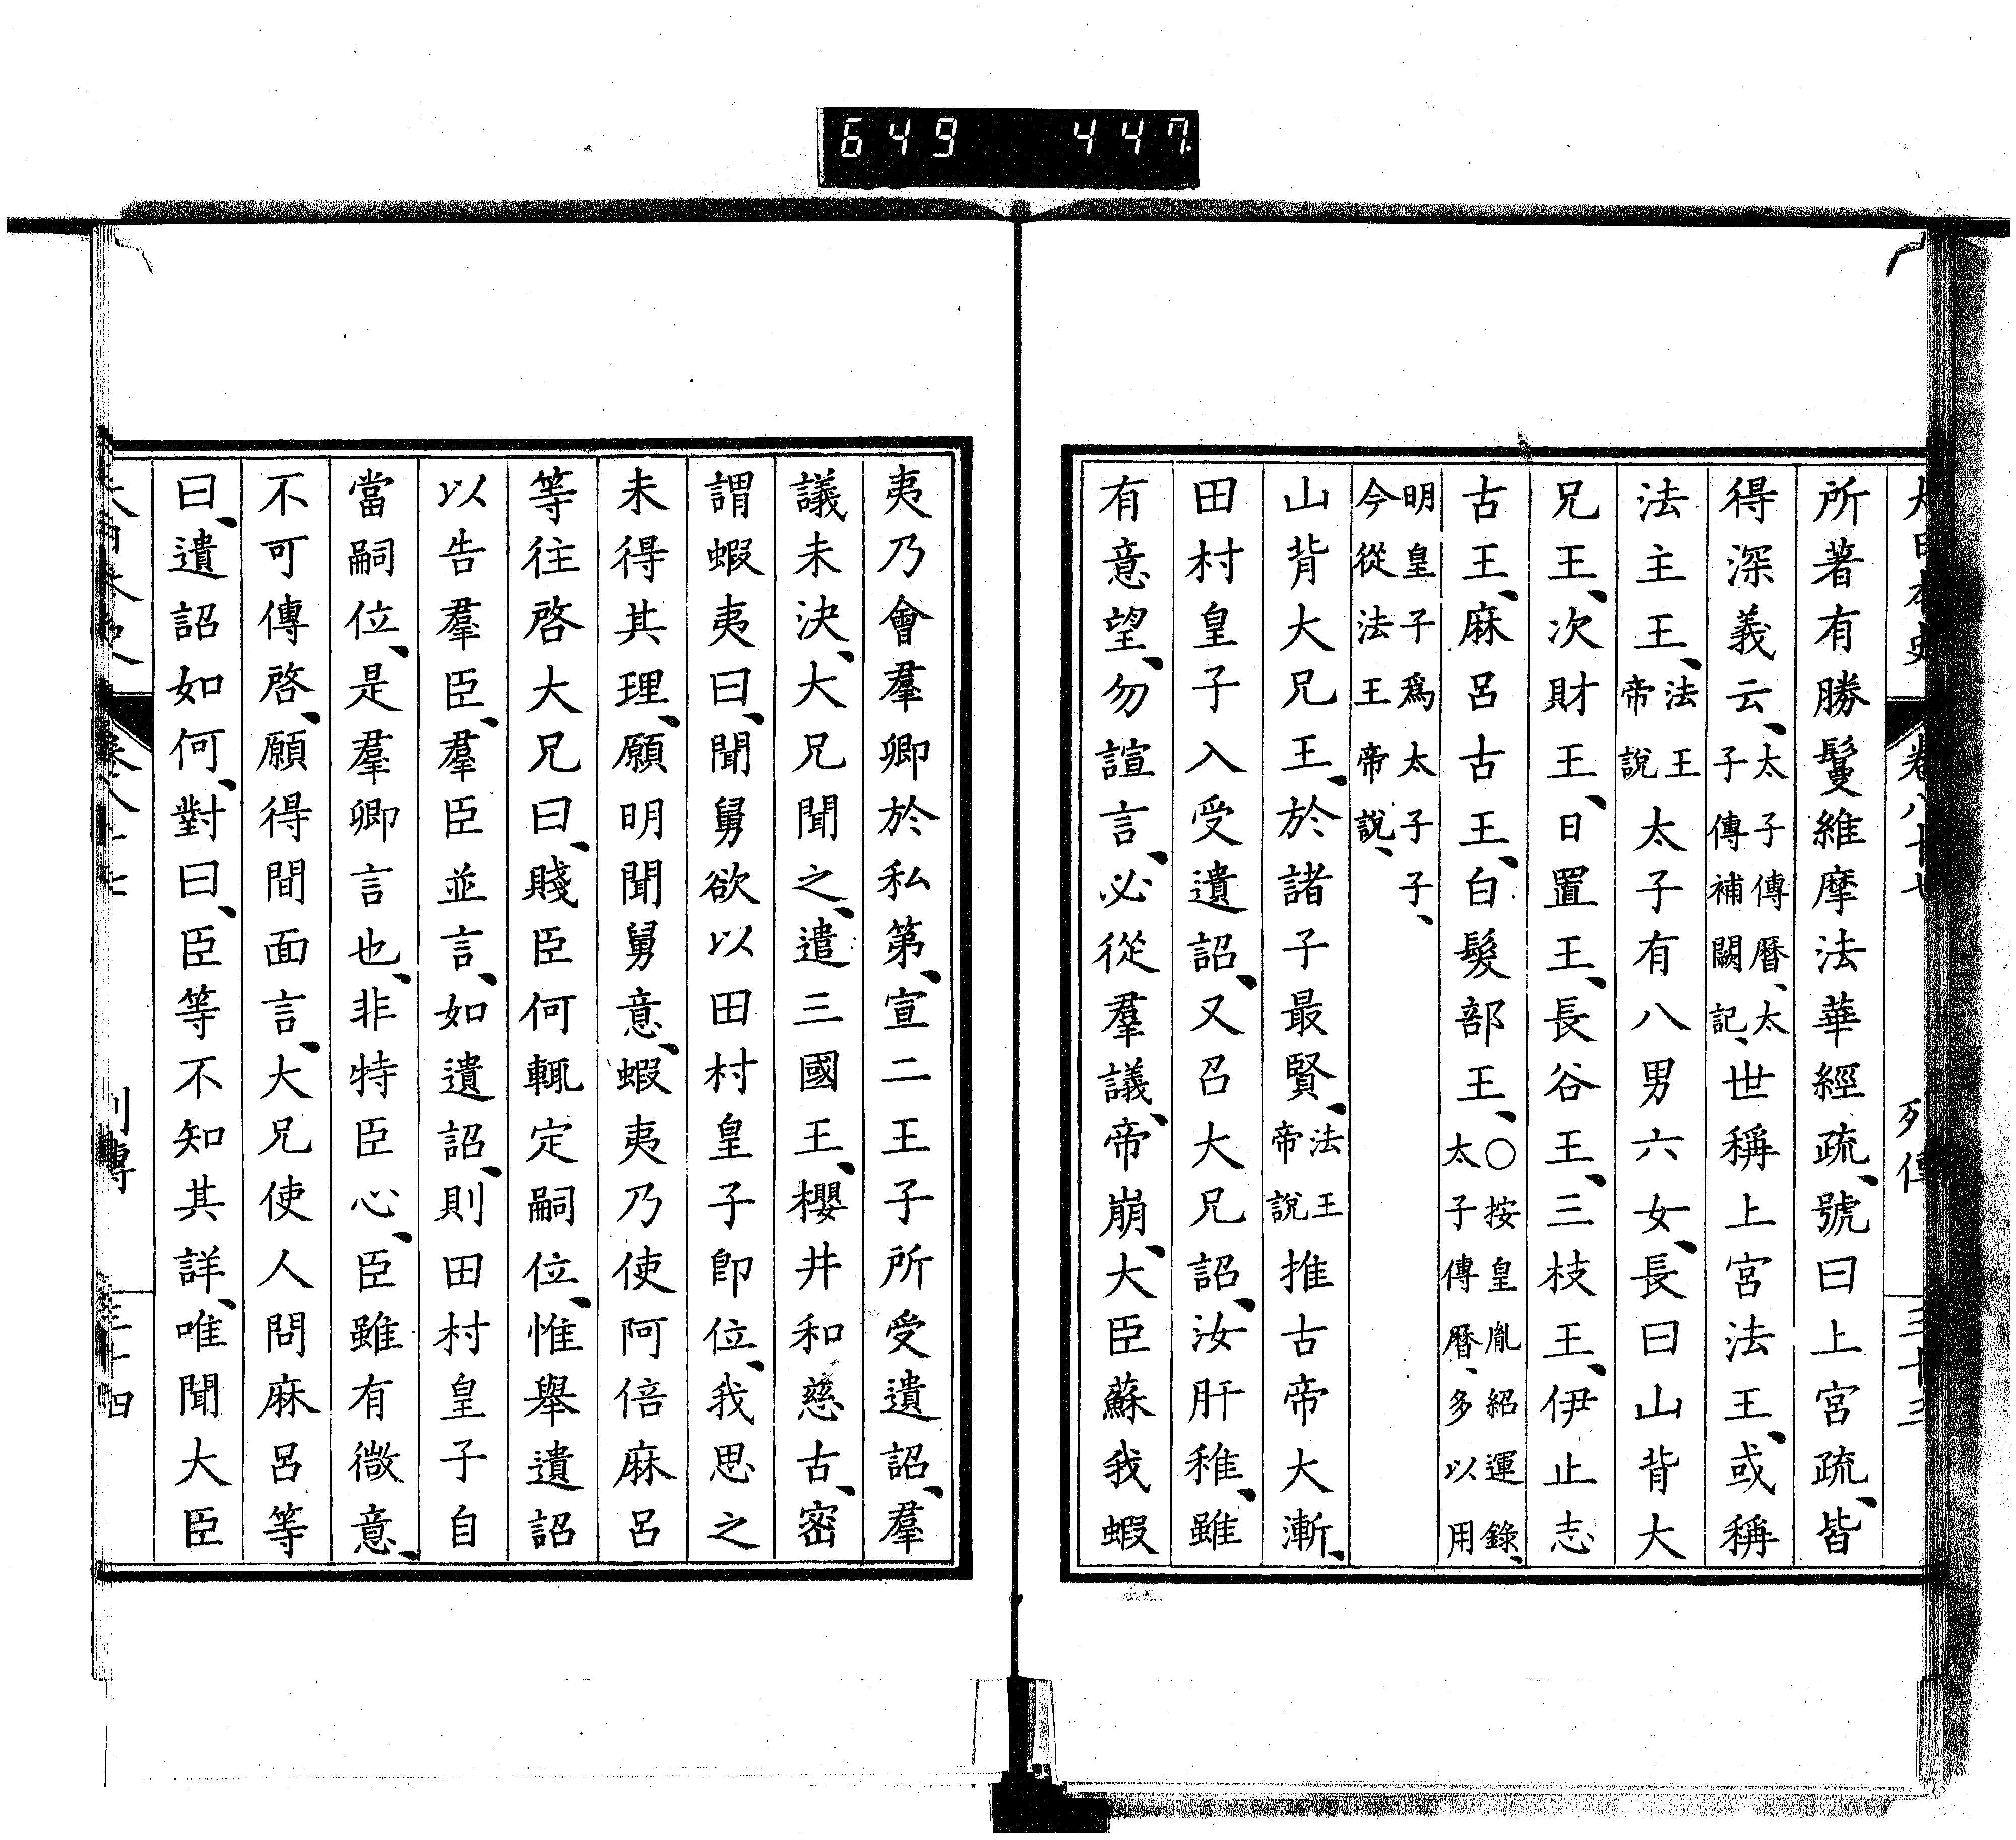 649 447.
大日本史 卷八十七 列傳 三十三
所著有勝鬘維摩法華經疏、號曰上宮疏、皆
得深義云、太子傳曆、太子傳補闕記、世稱上宮法王、或稱
法主王、法王帝說太子有八男六女、長曰山背大
兄王、次財王、日置王、長谷王、三枝王、伊止志
古王、麻呂古王、白髮部王、○按皇胤紹運錄、太子傳曆、多以用
明皇子爲太子子、今從法王帝說、
山背大兄王、於諸子最賢、法王帝說推古帝大漸、
田村皇子入受遺詔、又召大兄詔、汝肝稚、雖
有意望、勿諠言、必從羣議、帝崩、大臣蘇我蝦
夷乃會羣卿於私第、宣二王子所受遺詔、羣
議未決、大兄聞之、遣三國王、櫻井和慈古、密
謂蝦夷曰、聞舅欲以田村皇子卽位、我思之
未得其理、願明聞舅意、蝦夷乃使阿倍麻呂
等往啓大兄曰、賤臣何輒定嗣位、惟舉遺詔
以告羣臣、羣臣並言、如遺詔、則田村皇子自
當嗣位、是羣卿言也、非特臣心、臣雖有微意、
不可傳啓、願得間面言、大兄使人問麻呂等
曰、遺詔如何、對曰、臣等不知其詳、唯聞大臣
大日本史 卷八十七 列傳 三十四